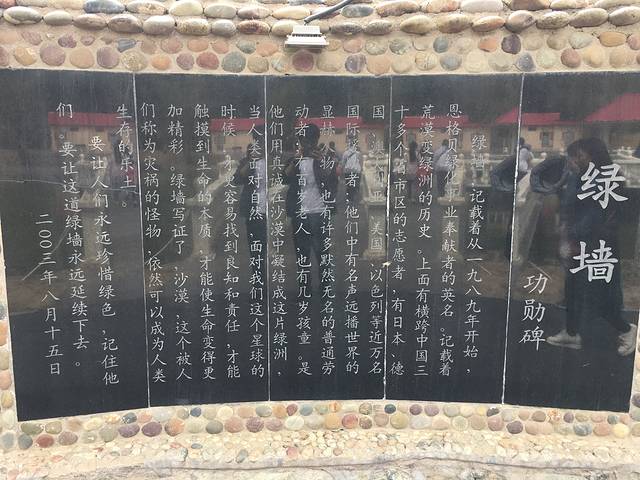 绿墙
功勋碑
绿墙，记载着从一九八九年开始，
恩格贝绿化事业奉献者的英名。记载着
荒漠变绿洲的历史。上面有横跨中国三
十多个省市区的志愿者，有日本、德
国、澳大利亚、美国、以色列等近万名
国际志愿者；他们中有名声远播世界的
显赫人物，也有许多默然无名的普通劳
动者；有百岁老人，也有几岁孩童。是
他们用真诚在沙漠中凝结成这片绿洲，
当人类面对自然、面对我们这个星球的
时候，才更容易找到良知和责任，才能
触摸到生命的本质，才能使生命变得更
加精彩。绿墙写证了，沙漠，这个被人
们称为灾祸的怪物，依然可以成为人类
生存的乐土。
要让人们永远珍惜绿色，记住他
们。要让这道绿墙永远延续下去。
二〇〇三年八月十五日